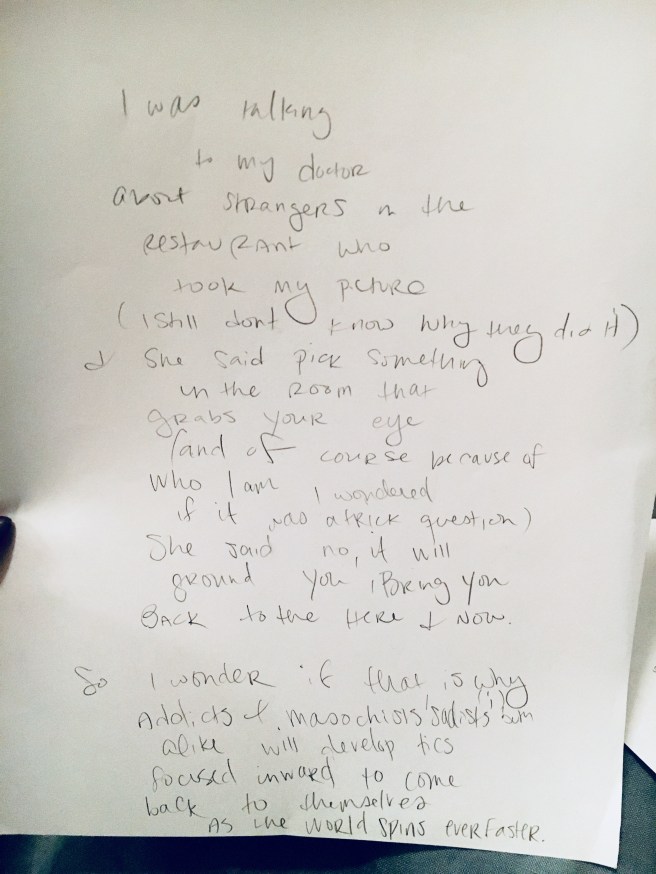 I was talking
to my doctor
about strangers in the
restaurant who
took my picture
(I still dont know why they did it)
& She said pick something
in the room that
grabs your eye
(and of course because of
who I am I wondered
if it was a trick question)
She said no, it will
ground you, Bring you
BACK to the HERE & NOW.
So I wonder if that is why
Addicts & masochists 'sadists'(!)
alike will develop tics
focused inward to come
back to themselves
AS the WORLD SPINS EVER FASTER.